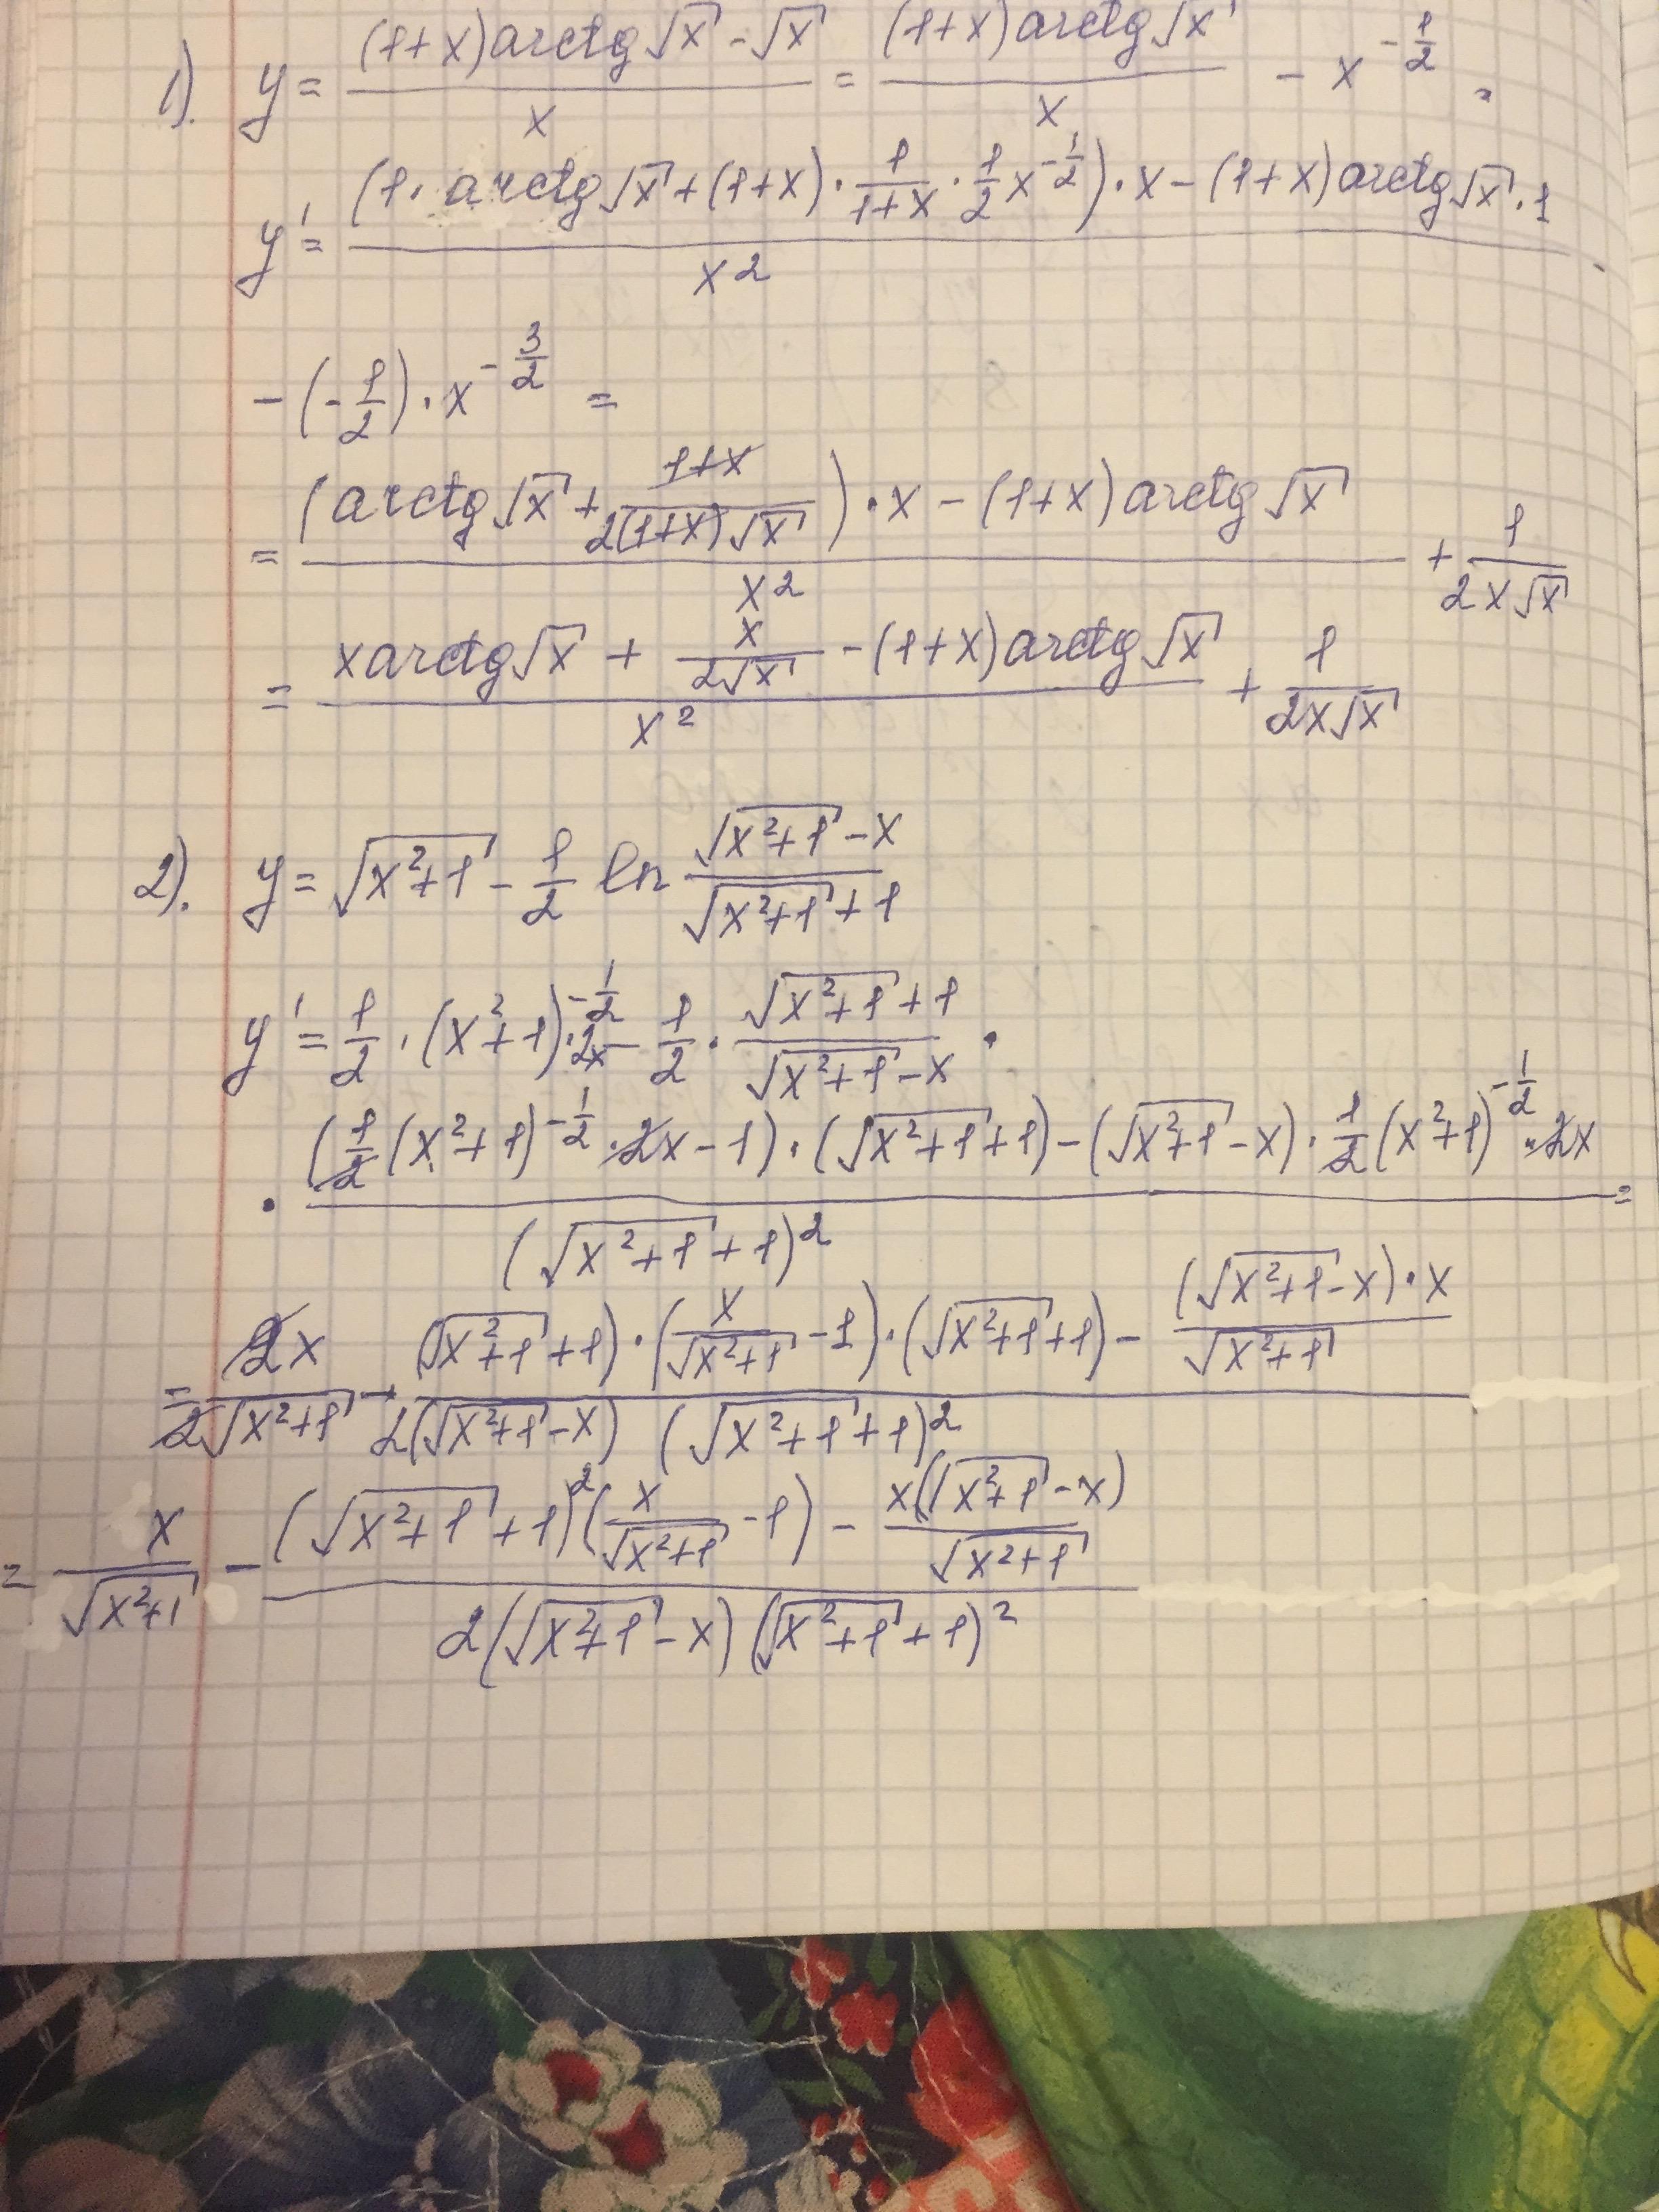 1). y = ((1+x)arctg√x - √x)/x = ((1+x)arctg√x)/x - x^(-1/2).
y' = ((1· arctg√x + (1+x)· 1/(1+x) · 1/2 x^(-1/2))· x - (1+x)arctg√x·1)/x² -
-(-1/2)· x^(-3/2) =
= ((arctg√x + (1+x)/(2(1+x)√x))· x - (1+x)arctg√x)/x² + 1/(2x√x)
= (x arctg√x + x/(2√x) - (1+x)arctg√x)/x² + 1/(2x√x)
2). y = √(x²+1) - 1/2 ln (√(x²+1) - x)/(√(x²+1) + 1)
y' = 1/2 · (x²+1)^(-1/2) · 2x - 1/2 · (√(x²+1) + 1)/(√(x²+1) - x) ·
· ((1/2 (x²+1)^(-1/2) · 2x - 1)· (√(x²+1) + 1) - (√(x²+1) - x)· 1/2 (x²+1)^(-1/2) · 2x)/(√(x²+1) + 1)² =
= 2x/(2√(x²+1)) - ((√(x²+1) + 1)· (x/√(x²+1) - 1)· (√(x²+1) + 1) - ((√(x²+1) - x)· x)/√(x²+1))/(2(√(x²+1) - x) (√(x²+1) + 1)²)
= x/√(x²+1) - ((√(x²+1) + 1)² (x/√(x²+1) - 1) - x(√(x²+1) - x)/√(x²+1))/(2(√(x²+1) - x) (√(x²+1) + 1)²)